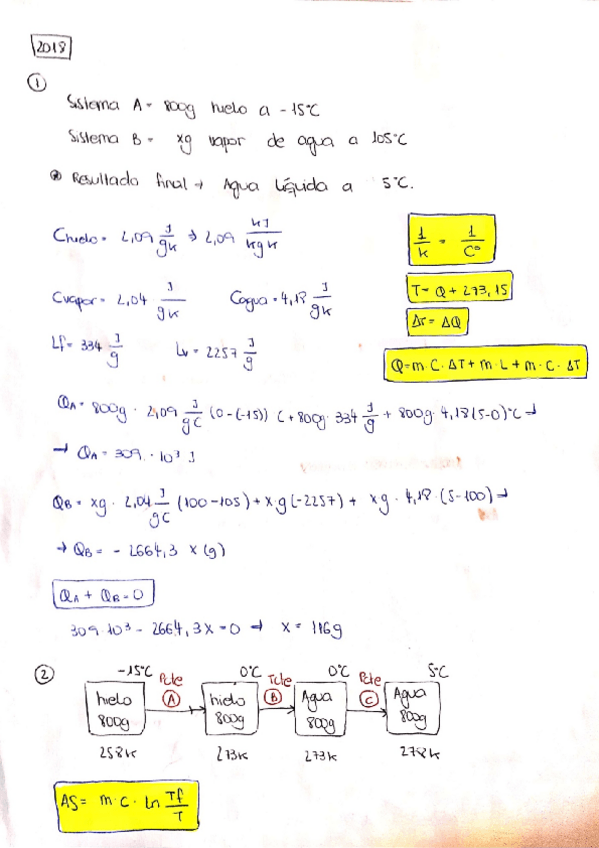 2018
①
Sistema A = 800g hielo a -15°C
Sistema B = xg vapor de agua a 105°C
⊛ Resultado final → Agua Líquida a 5°C.
Chielo = 2,09 J/gK → 2,09 kJ/kgK
1/K = 1/C°
Cvapor = 2,04 J/gK Cagua = 4,18 J/gK
T = Q + 273,15
ΔT = ΔQ
Lf = 334 J/g Lv = 2257 J/g
Q = m·C·ΔT + m·L + m·C·ΔT
QA = 800g · 2,09 J/gC (0-(-15)) C + 800g · 334 J/g + 800g · 4,18 (5-0)°C →
→ QA = 309 · 10³ J
QB = xg · 2,04 J/gC (100-105) + x·g (-2257) + xg · 4,18 · (5-100) →
→ QB = - 2664,3 x (g)
QA + QB = 0
309·10³ - 2664,3x = 0 → x = 116g
② -15°C Pcte 0°C Tcte 0°C Pcte 5°C
hielo 800g Ⓐ hielo 800g Ⓑ Agua 800g Ⓒ Agua 800g
258K 273K 273K 278K
ΔS = m·C·ln Tf/T